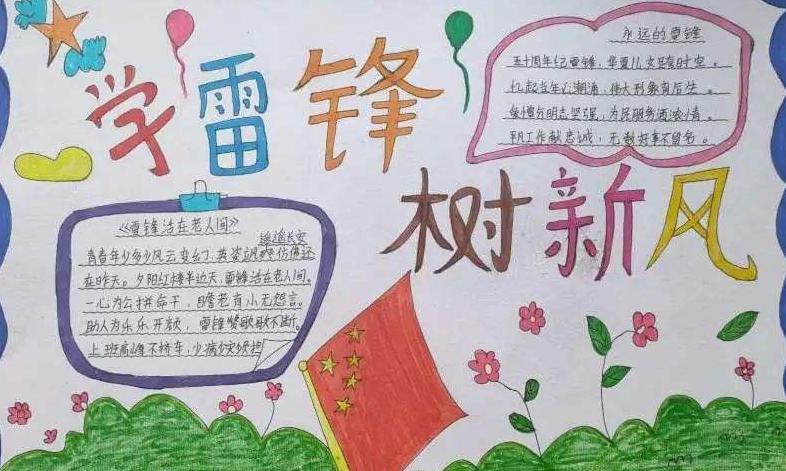 学雷锋
树新风
永远的雷锋
五十周年纪雷锋，华夏儿女跨时空。
忆起当年心潮涌，伟大形象育后生。
爱憎分明志坚强，为民服务洒浓情。
平凡工作献忠诚，无数好事不留名。
《雷锋活在老人间》
逍遥长安
青春年少多少风云变幻，英姿飒爽仿佛还
在昨天。夕阳红楼半边天，雷锋活在老人间。
一心为公拼命干，瞻老育小无怨言。
助人为乐乐开颜，雷锋赞歌歌不断。
上班高峰不挤车，少病少灾少负担